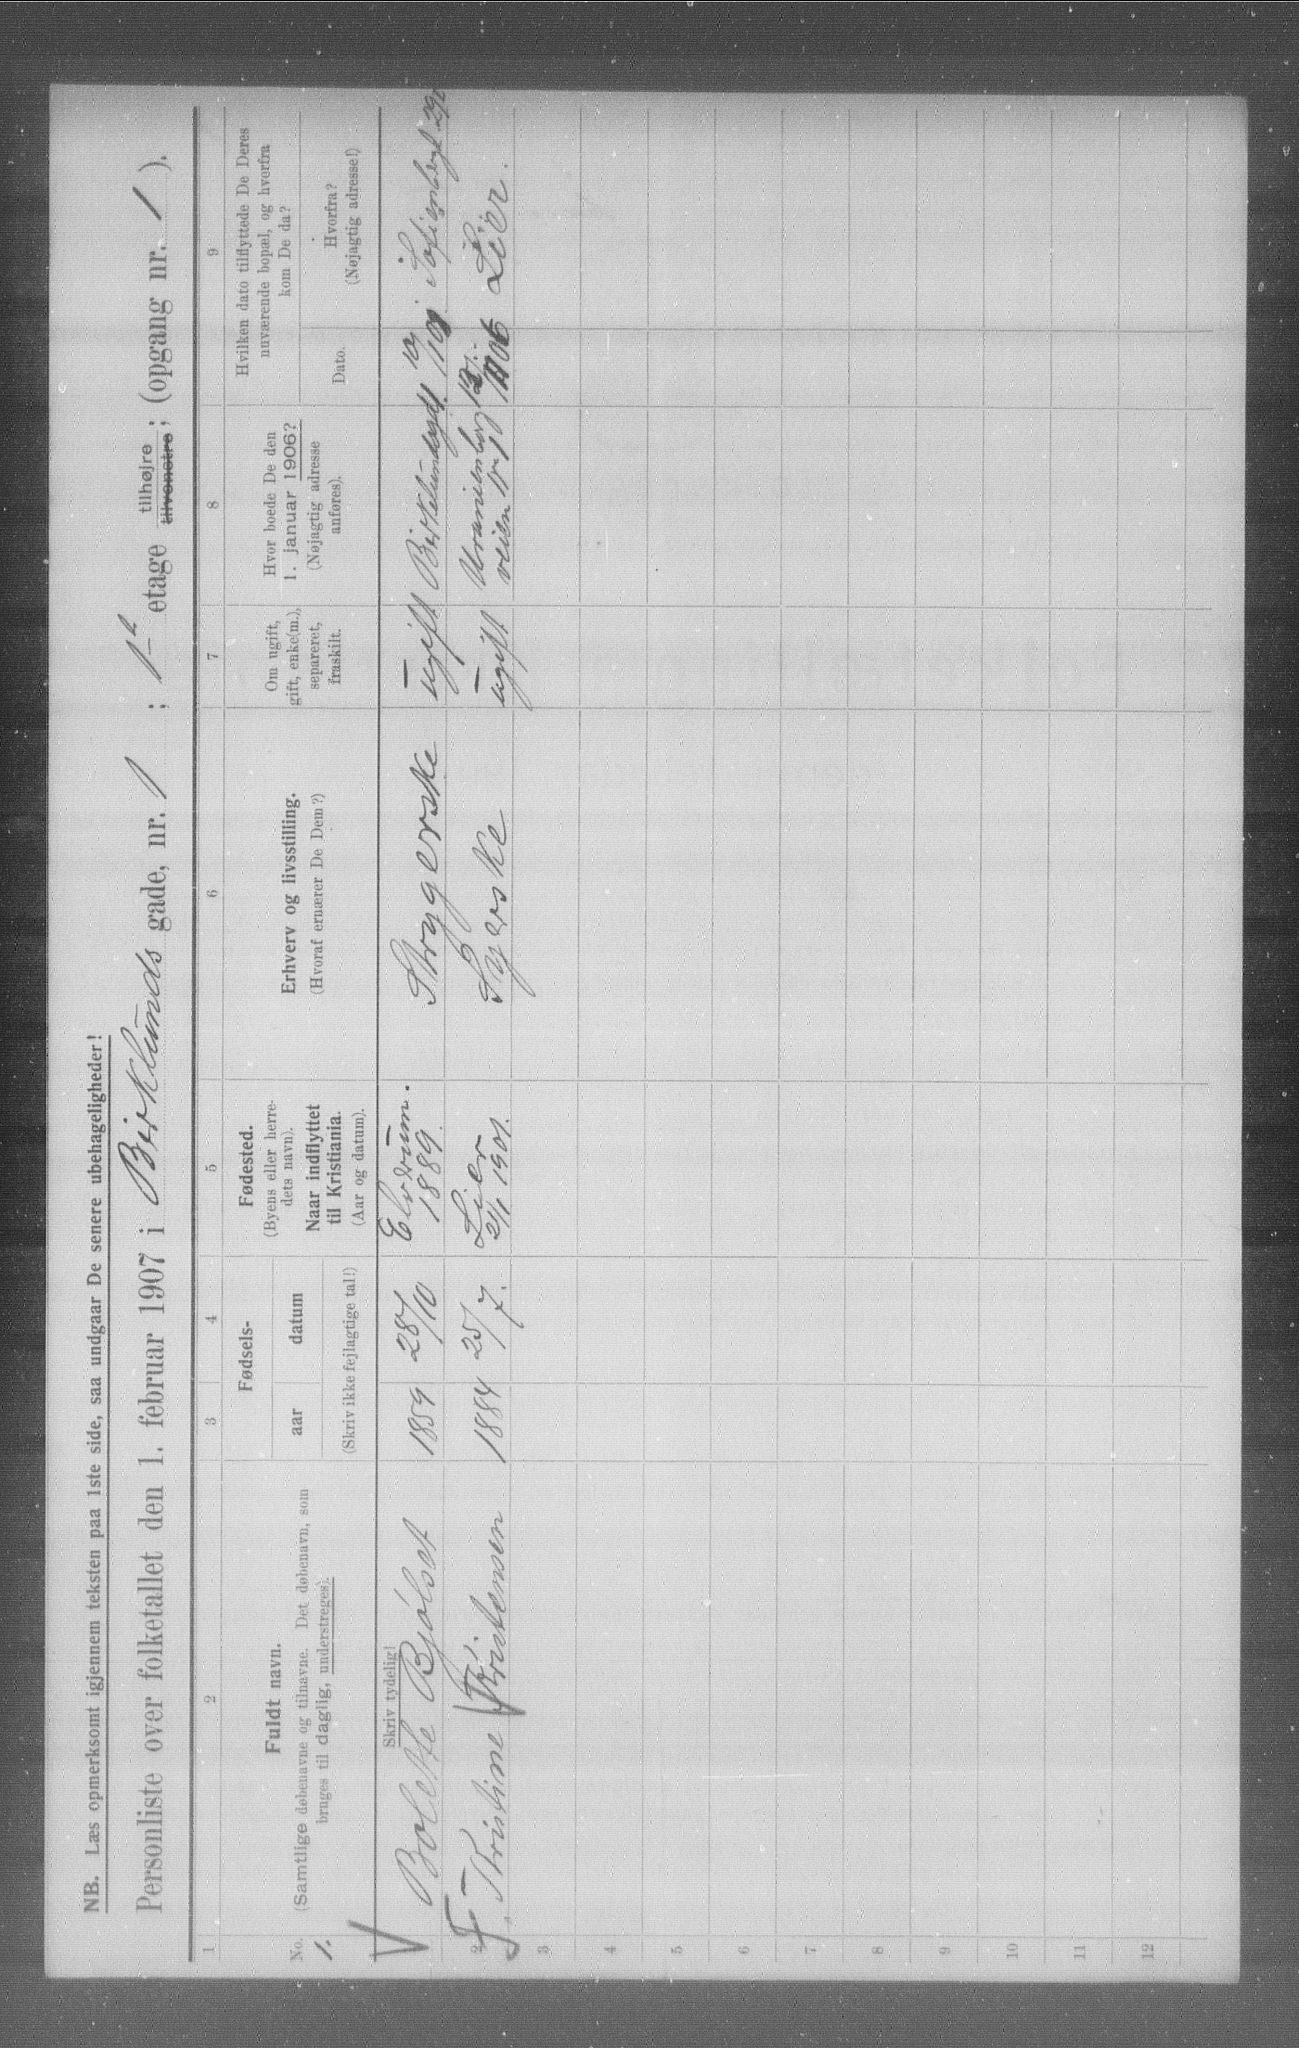 NB. Læs opmerksomt igjennem teksten paa 1ste side, saa undgaar De senere ubehageligheder!
Personliste over folketallet den 1. februar 1907 i Birklunds gade, nr. 1 ; 1ste etage tilhøjre tilvenstre; (opgang nr. 1 ).
1 2 3 4 5 6 7 8 9
No.
1.
Fuldt navn.
(Samtlige døbenavne og tilnavne. Det døbenavn, som
bruges til daglig, understreges).
Fødsels-
aar datum
(Skriv ikke fejlagtige tal!)
Fødested.
(Byens eller herre-
dets navn).
Naar indflyttet
til Kristiania.
(Aar og datum).
Erhverv og livsstilling.
(Hvoraf ernærer De Dem?)
Om ugift,
gift, enke(m.),
separeret,
fraskilt.
Hvor boede De den
1. januar 1906?
(Nøjagtig adresse
anføres).
Hvilken dato tilflyttede De Deres
nuværende bopæl, og hvorfra
kom De da?
Dato.
Hvorfra?
(Nøjagtig adresse!)
Skriv tydelig!
Bolette Bjølset 1859 28/10 Elverum. 1889. Strygerske ugift
2 Kristine Kristensen 1884 25/7. Lier 2/1 1901. Syerske ugift Uranienborg veien Lier.
3
4
5
6
7
8
9
10
11
12